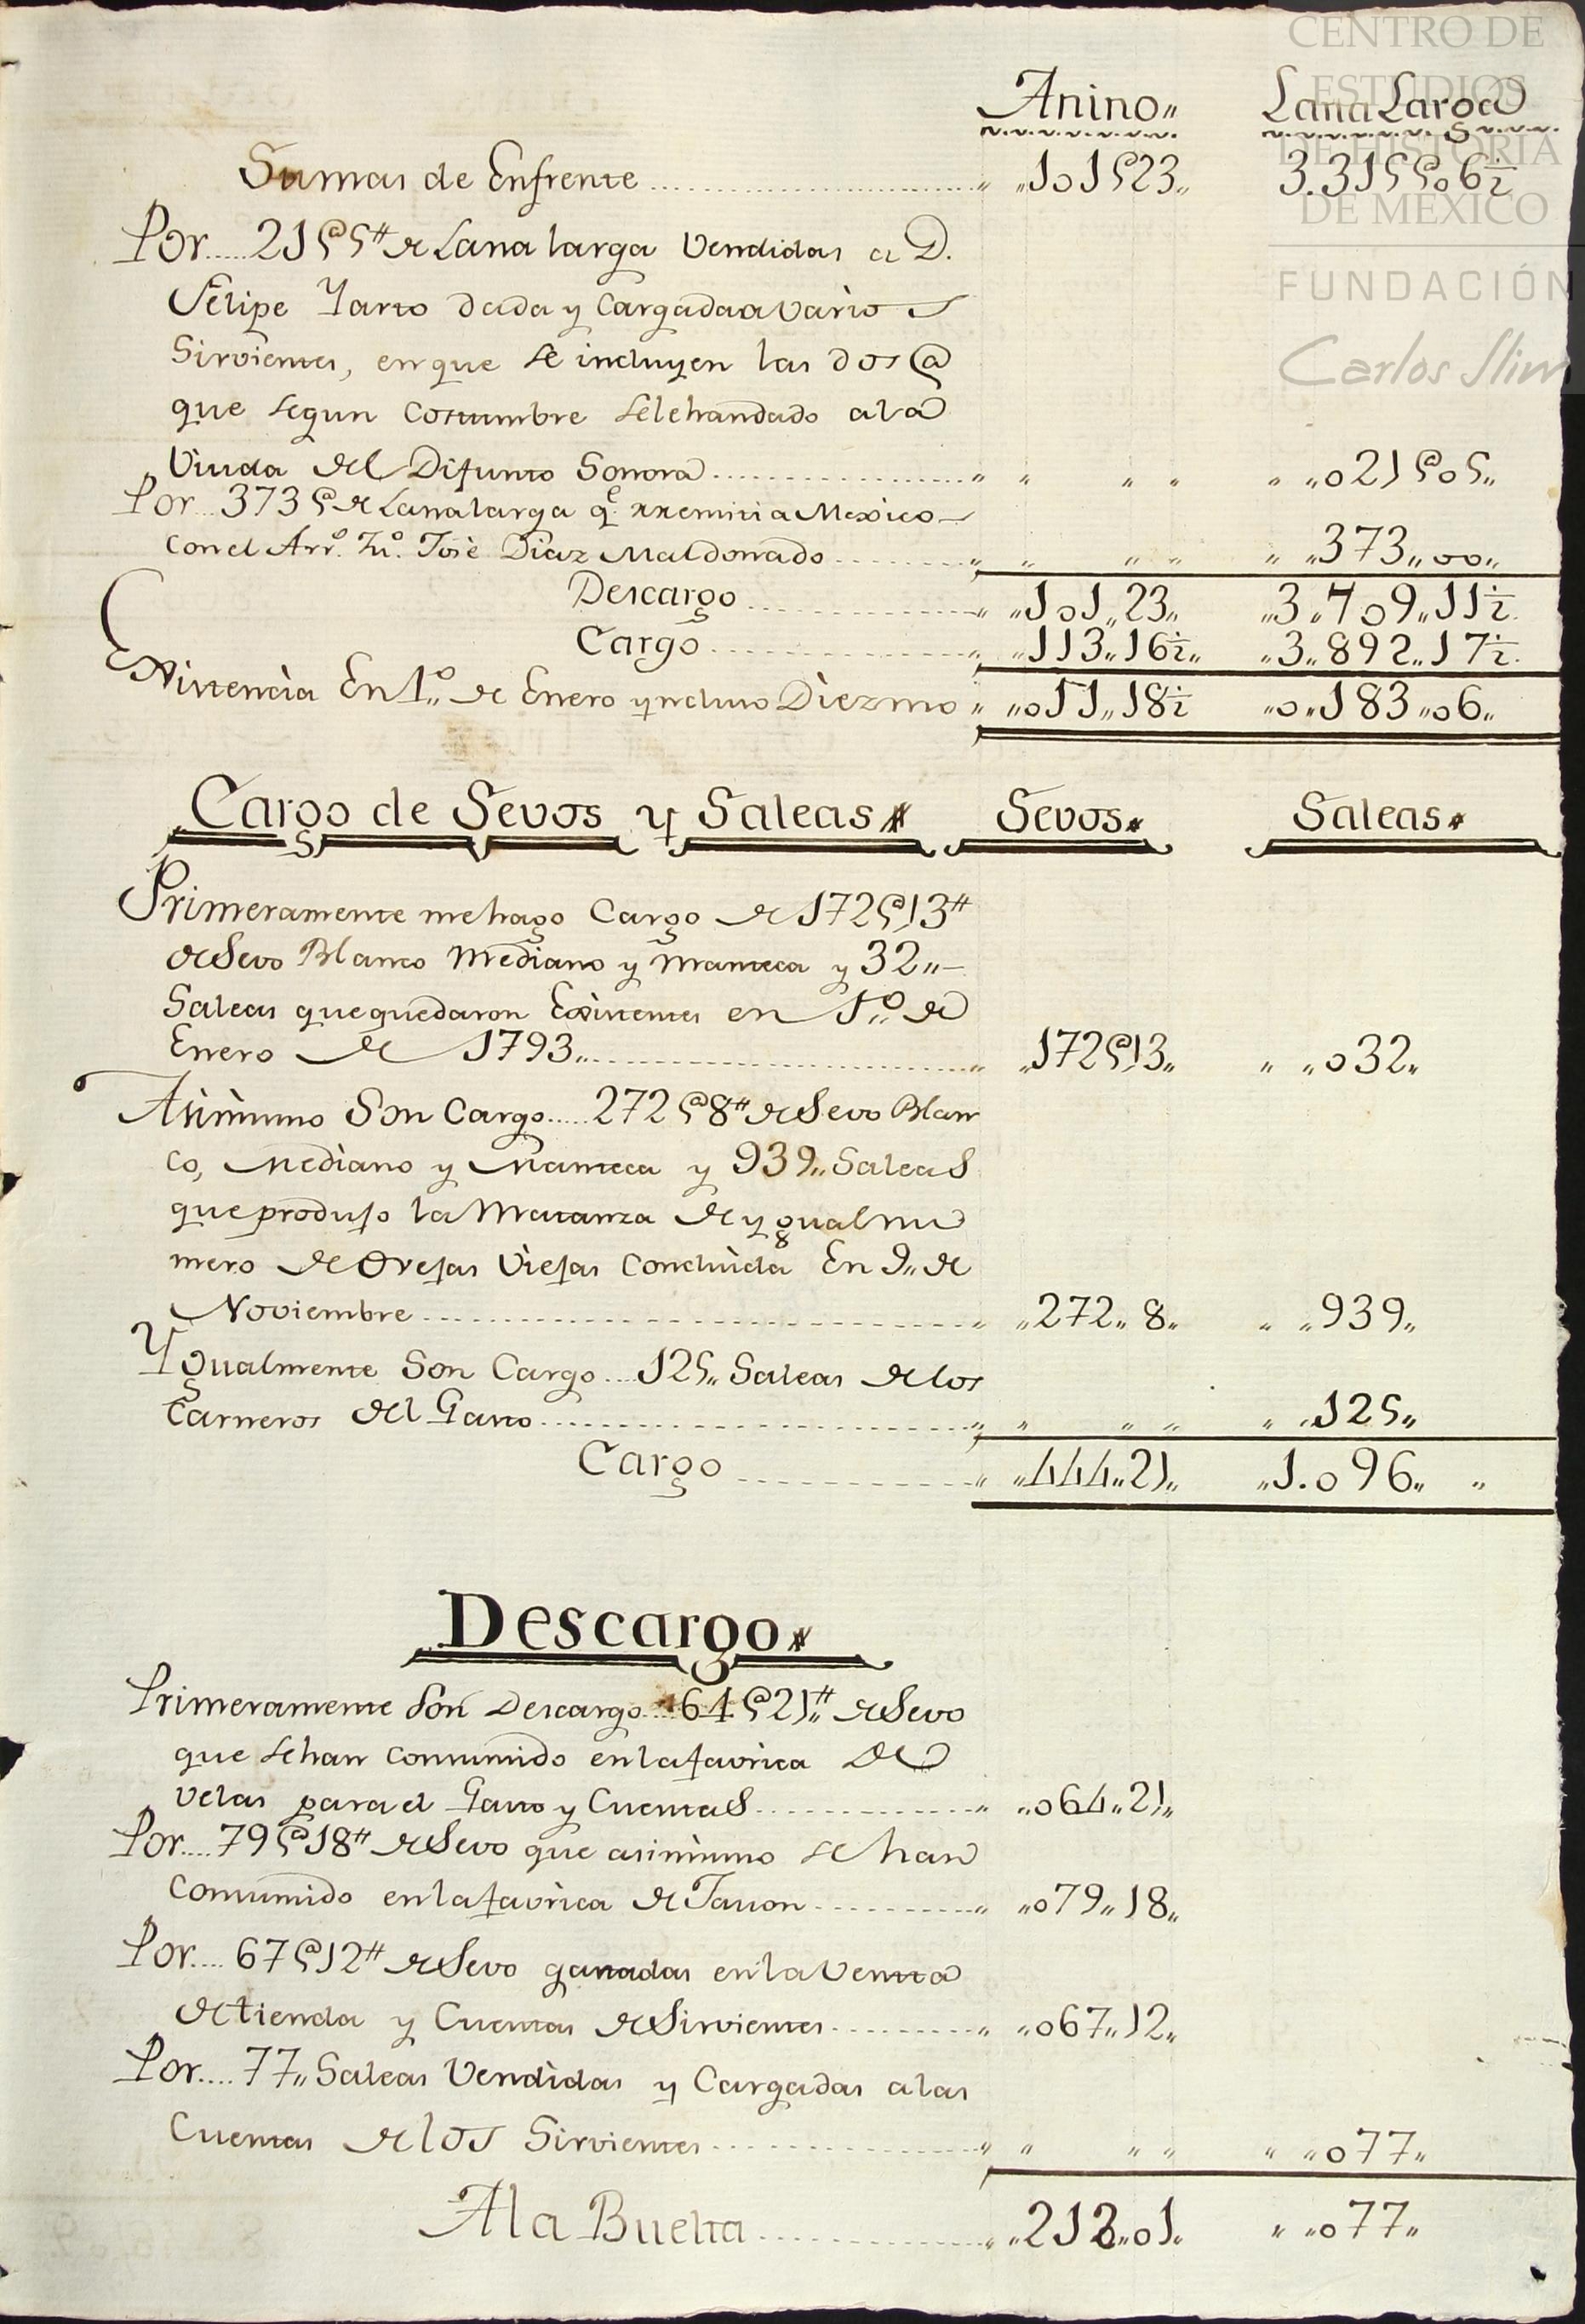 CENTRO DE
ESTUDIOS
DE HISTORIA
DE MÉXICO
FUNDACIÓN
Carlos Slim
Anino,, Lana Larga
Sumas de Enfrente ,, ,,101@23,, 3.315@06½
Por 215@5tt de Lana larga Vendidas a D.
Felipe Yarto dada y Cargada a Varios
Sirvientes, en que se incluyen las dos @
que segun Costumbre se le han dado a la
Viuda del Difunto Sonora ,, ,, ,, ,, ,, ,,021@05,,
Por 373@ de Lana larga q.e remiti a Mexico
con el Arr.o Fu.o Josè Diaz Maldonado ,, ,, ,, ,, ,, ,,373,,00,,
Descargo ,, ,,101,,23,, ,,3,,709,,11½
Cargo ,, ,,113,,16½,, ,,3,,892,,17½
Existencia En 1.o de Enero y incluso Diezmo ,, ,,011,,18½ ,,0,,183,,06,,
Cargo de Sevos y Saleas Sevos Saleas
Primeramente me hago Cargo de 172@13tt
de Sevo Blanco Mediano y Manteca y 32,,
Saleas que quedaron Existentes en 1.o de
Enero de 1793,, ,, ,,172@13,, ,, ,,032,,
Asimismo Son Cargo 272@8tt de Sevo Blan
co, Mediano y Manteca y 939,, Saleas
que produjo la Matanza de ygual nu
mero de Ovejas Viejas Concluida En 9,, de
Noviembre ,, ,,272,,8,, ,, ,,939,,
Ygualmente Son Cargo 125,, Saleas de los
Carneros del Gasto ,, ,, ,, ,, ,, ,,125,,
Cargo ,, ,,444,,21,, ,,1.096,, ,,
Descargo
Primeramente Son Descargo 64@21tt de Sevo
que se han Consumido en la favrica de
Velas para el Gasto y Cuentas ,, ,,064,,21,,
Por 79@18tt de Sevo que asimismo se han
Consumido en la favrica de Javon ,, ,,079,,18,,
Por 67@12tt de Sevo gastadas en la Venta
de tienda y Cuentas de Sirvientes ,, ,,067,,12,,
Por 77,, Saleas Vendidas y Cargadas a las
Cuentas de los Sirvientes ,, ,, ,, ,, ,, ,,077,,
A la Buelta ,, ,,212,,01,, ,, ,,077,,